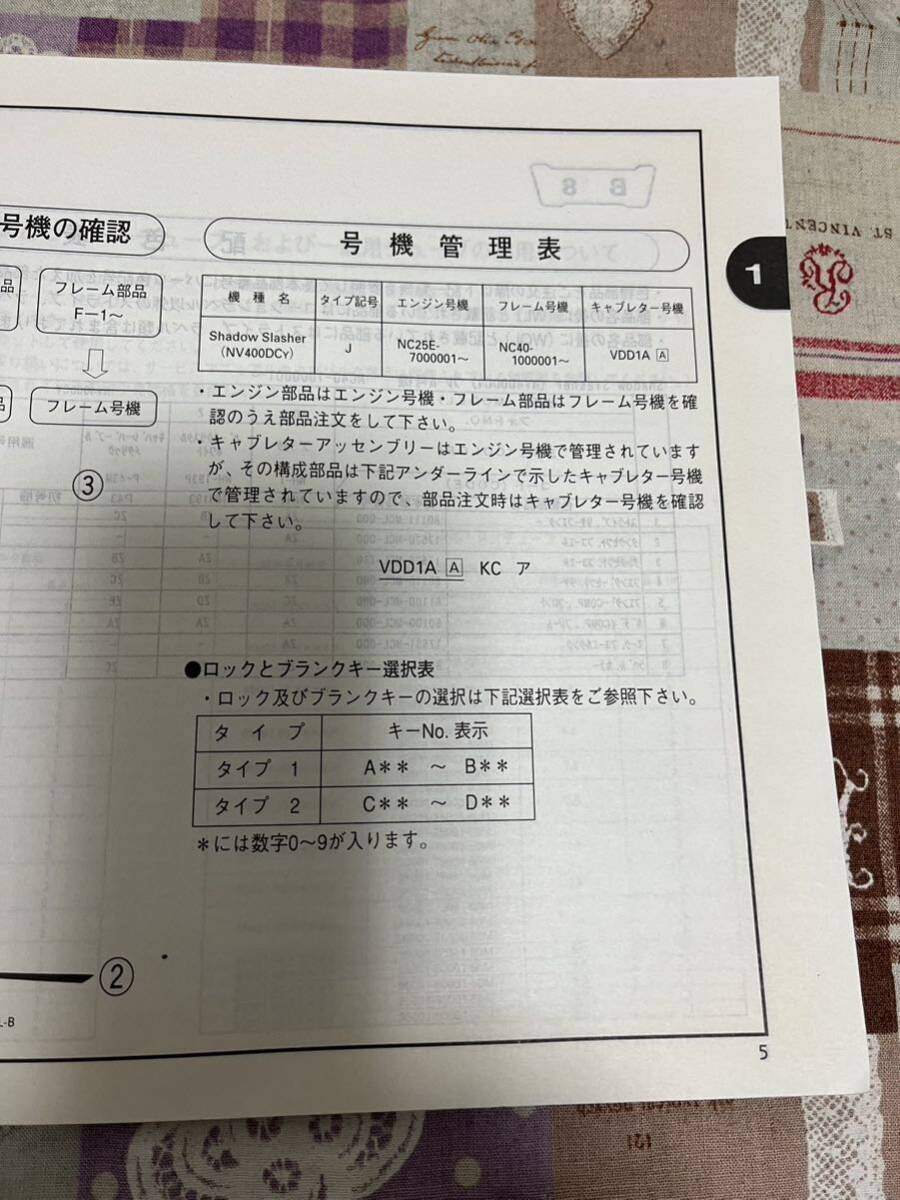 号機の確認
フレーム部品
F－1～
フレーム号機
③
②
L-B
号機管理表
機種名 タイプ記号 エンジン号機 フレーム号機 キャブレター号機
Shadow Slasher
(NV400DCY) J NC25E-
7000001～ NC40-
1000001～ VDD1A A
・エンジン部品はエンジン号機・フレーム部品はフレーム号機を確
認のうえ部品注文をして下さい。
・キャブレターアッセンブリーはエンジン号機で管理されています
が、その構成部品は下記アンダーラインで示したキャブレター号機
で管理されていますので、部品注文時はキャブレター号機を確認
して下さい。
VDD1A A KC ア
●ロックとブランクキー選択表
・ロック及びブランクキーの選択は下記選択表をご参照下さい。
タイプ キーNo.表示
タイプ 1 A＊＊ ～ B＊＊
タイプ 2 C＊＊ ～ D＊＊
＊には数字0～9が入ります。
1
5
ST. VINCENT